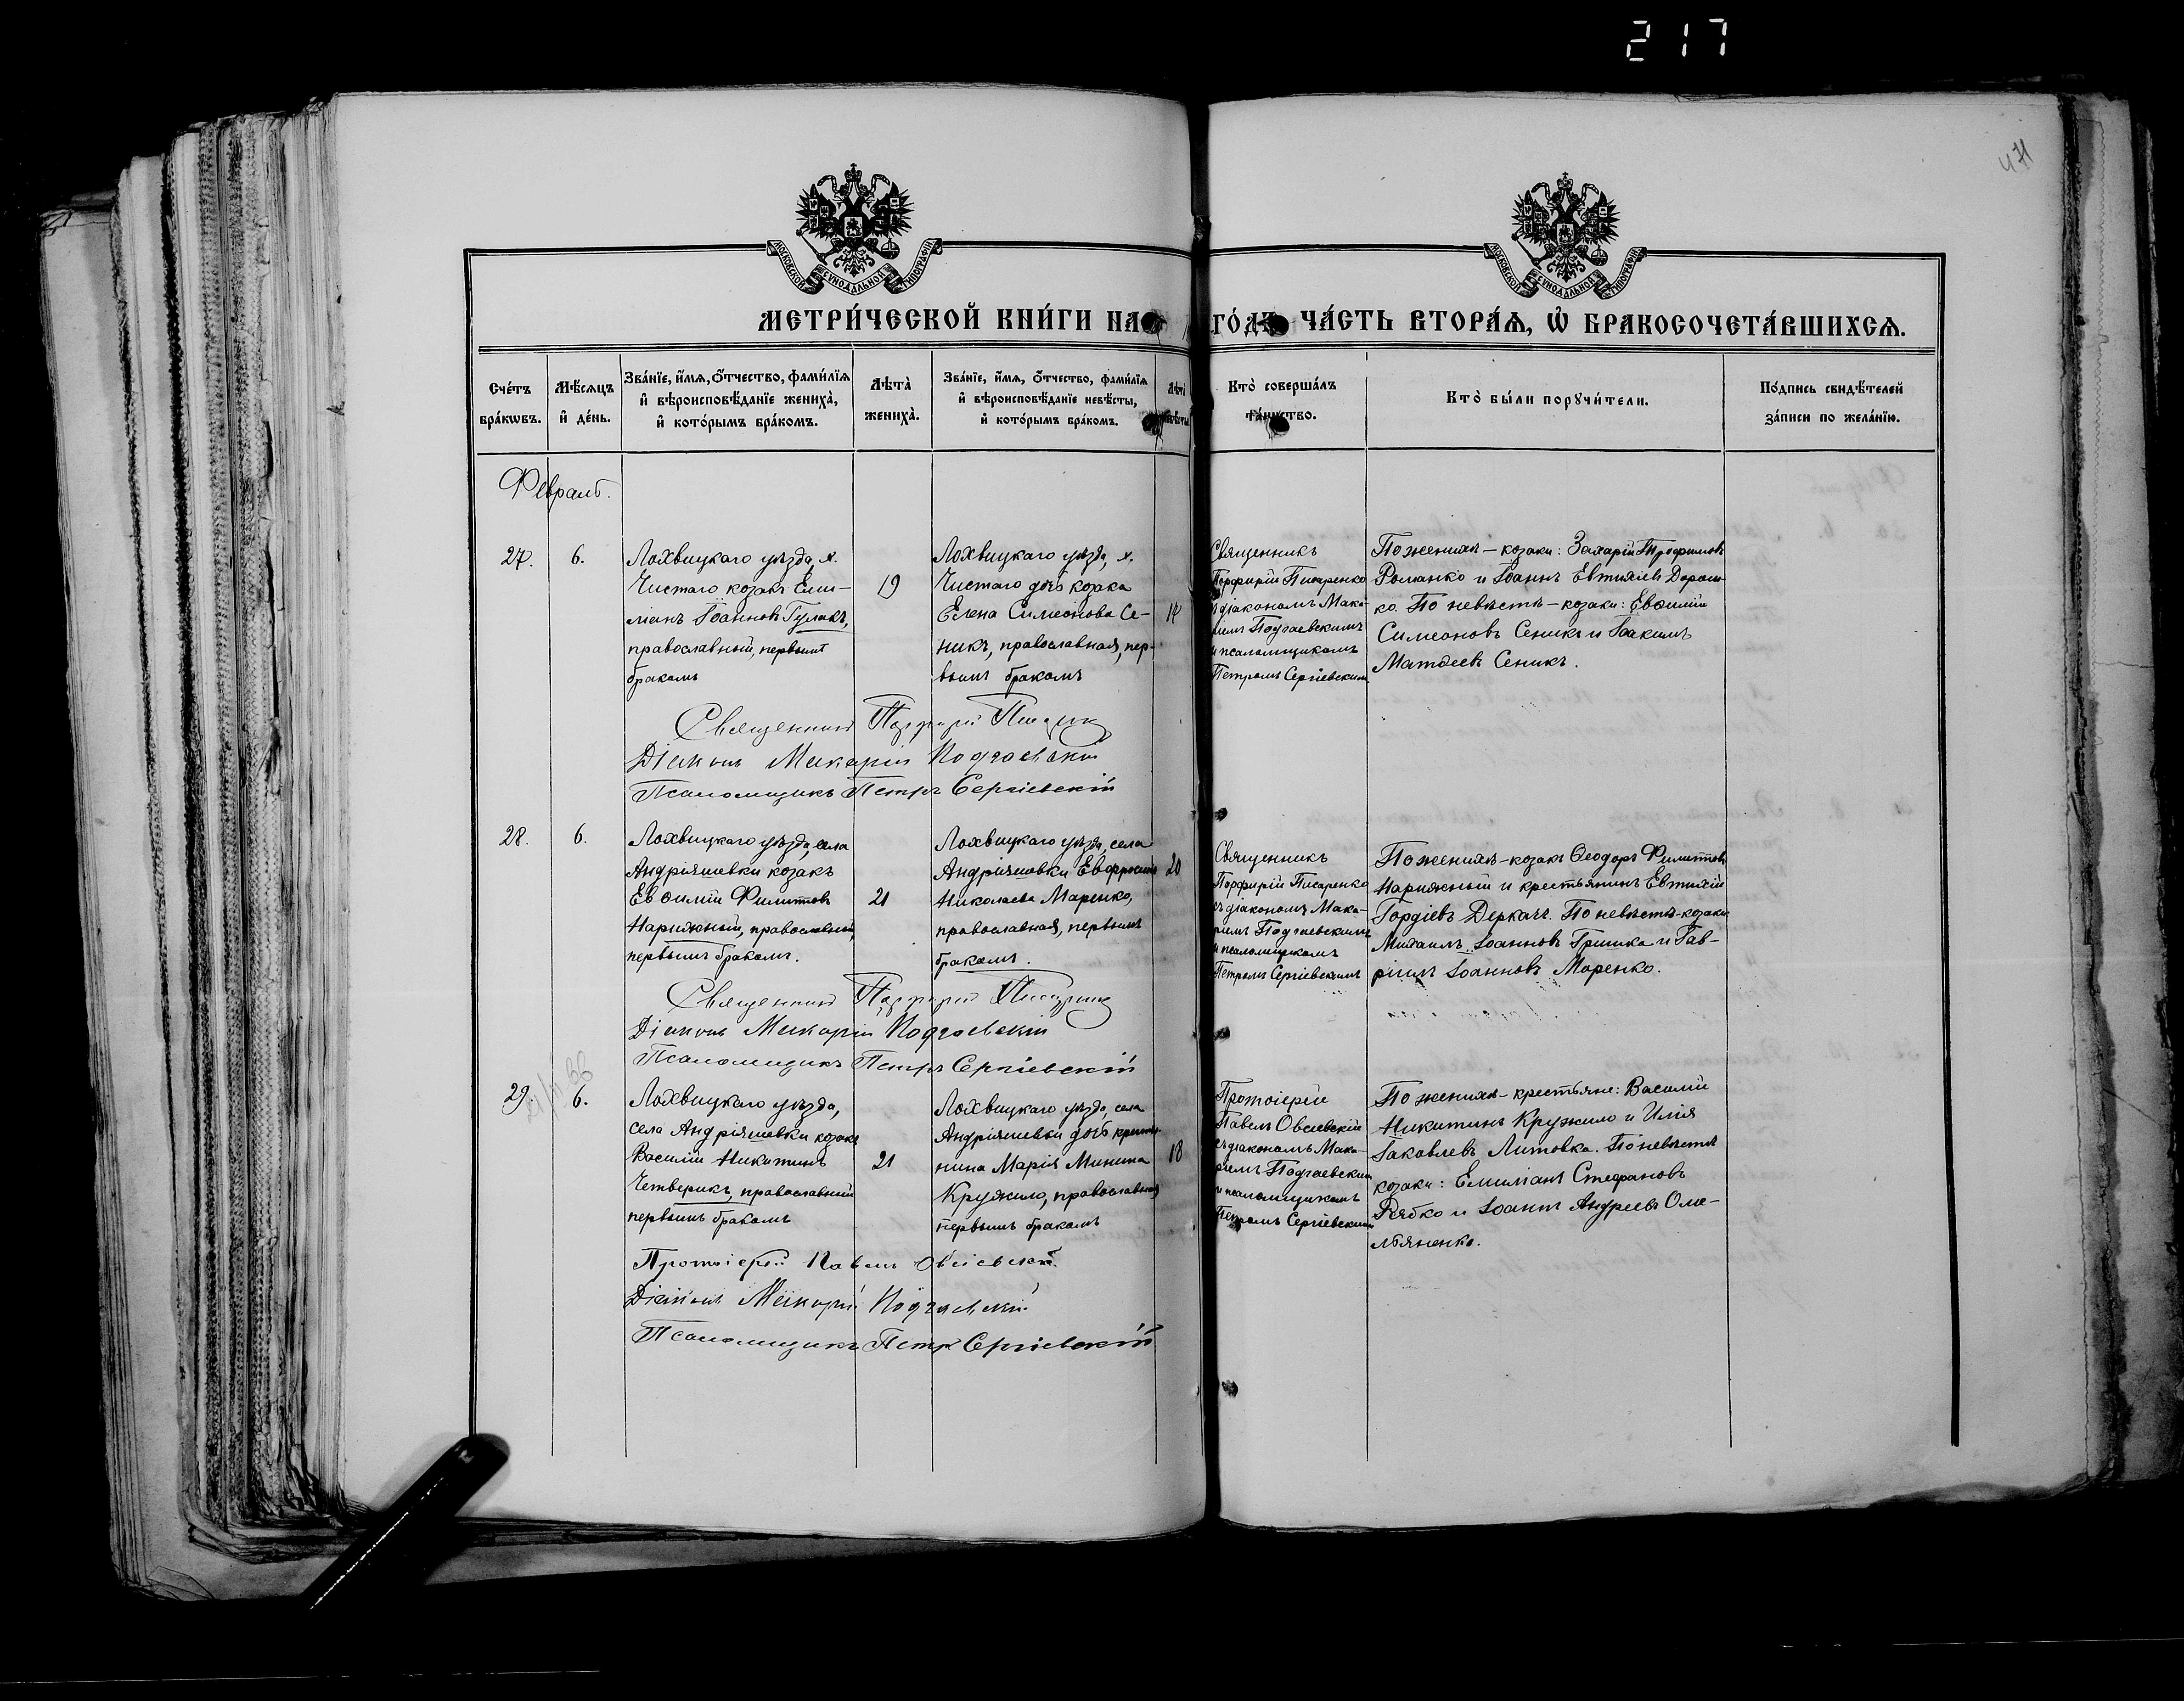 217
471
МОСКОВСКОЙ СѴНОДАЛЬНОЙ ТИПОГРАФІИ
МОСКОВСКОЙ СѴНОДАЛЬНОЙ ТИПОГРАФІИ
МЕТРИ́ЧЕСКОЙ КНИ́ГИ НА ГО́ДЪ ЧА́СТЬ ВТОРА́Ѧ, Ѡ҆ БРАКОСОЧЕТА́ВШИХСѦ.
Сче́тъ
бра́кѡвъ.
Мѣ́сѧцъ
и҆ де́нь.
Зва́нїе, и҆́мѧ, ѻ҆́тчество, фами́лїѧ
и҆ вѣроисповѣ́данїе жениха̀,
и҆ кото́рымъ бра́комъ.
Лѣта̀
жениха̀.
Зва́нїе, и҆́мѧ, ѻ҆́тчество, фами́лїѧ
и҆ вѣроисповѣ́данїе невѣ́сты,
и҆ кото́рымъ бра́комъ.
Кто̀ соверша́лъ
та́инство.
Кто̀ бы́ли порꙋчи́тели.
По́дпись свидѣ́телей
за́писи по жела́нїю.
Февраль.
27.
6.
Лохвицкаго уѣзда, х.
Чистаго козакъ Еми-
ліанъ Іоанновъ Гулакъ,
православный, первымъ
бракомъ
19
Лохвицкаго уѣзда, х.
Чистаго дочь козака
Елена Симеонова Се-
никъ, православная, пер-
вымъ бракомъ
Священникъ
Порфирій Писаренко
діакономъ Мака-
ріемъ Подгаевскимъ
и псаломщикомъ
Петромъ Сергіевскимъ
По женихѣ – козаки: Захарій Трофимовъ
Романко и Іоаннъ Евтихіевъ Дорош-
ко. По невѣстѣ – козаки: Евѳимій
Симеоновъ Сеникъ и Іоакимъ
Матѳеевъ Сеникъ.
Священникъ Порфирій Писаренко
Діаконъ Макарій Подгаевскій
Псаломщикъ Петръ Сергіевскій
28.
6.
Лохвицкаго уѣзда, села
Андріяшевки козакъ
Евѳимій Филипповъ
Нарижный, православный,
первымъ бракомъ.
21
Лохвицкаго уѣзда, села
Андріяшевки Евфросинія
Николаева Маренко,
православная, первымъ
бракомъ.
20
Священникъ
Порфирій Писаренко
съ діакономъ Мака-
ріемъ Подгаевскимъ
и псаломщикомъ
Петромъ Сергіевскимъ
По женихѣ – козакъ Ѳеодоръ Филипповъ
Нарижный и крестьянинъ Евтихій
Гордіевъ Деркачъ. По невѣстѣ – козаки
Михаилъ Іоанновъ Гришка и Гав-
ріилъ Іоанновъ Маренко.
Священникъ Порфирій Писаренко
Діаконъ Макарій Подгаевскій
Псаломщикъ Петръ Сергіевскій
29.
6.
Лохвицкаго уѣзда,
села Андріяшевки козакъ
Василій Никитинъ
Четверикъ, православный
первымъ бракомъ
21
Лохвицкаго уѣзда, села
Андріяшевки дочь кресть-
нина Марія Минина
Кружило, православная
первымъ бракомъ
18
Протоіерей
Павелъ Овсіевскій
съ діакономъ Мака-
ріемъ Подгаевскимъ
и псаломщикомъ
Петромъ Сергіевскимъ
По женихѣ – крестьяне: Василій
Никитинъ Кружило и Илія
Іаковлевъ Литовка. По невѣстѣ
козаки: Емиліанъ Стефановъ
Рябко и Іоаннъ Андреевъ Оме-
льяненко.
Протоіерей Павелъ Овсіевскій
Діаконъ Макарій Подгаевскій
Псаломщикъ Петръ Сергіевскій